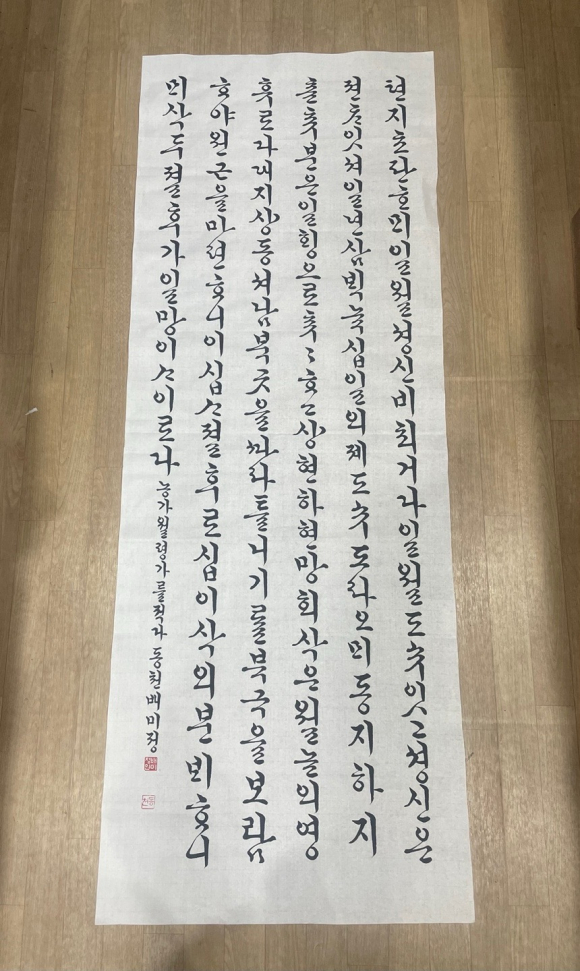 텬지초판ᄒᆞᄆᆡ일월셩신비최거다일월도수잇고셩신은
젼ᄎᆞ잇셔일년삼ᄇᆡᆨ뉵십일의졔도수도라오ᄆᆡ동지하지
츈츄분은일ᄒᆡᆼ으로ᄒᆞ고상현하현망회삭은월눌의영
휴로다대지상동셔남북곳을ᄯᅡ라틀니기를북극을보람
ᄒᆞ야원근을마련ᄒᆞ니이십ᄉᆞ졀후로십이삭의분ᄇᆡᄒᆞ니
ᄆᆡ삭두졀후가일망이ᄉᆞ이로다 농가월령가를적다 동천백미정